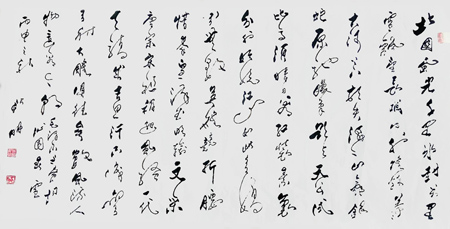 北国风光千里冰封万里
雪飘望长城内外惟余莽莽
大河上下顿失滔滔山舞银
蛇原驰蜡象欲与天公试
比高须晴日看红装素裹
分外妖娆江山如此多娇
引无数英雄竞折腰
惜秦皇汉武略输文采
唐宗宋祖稍逊风骚一代
天骄成吉思汗只识弯
弓射大雕俱往矣数风流人
物还看今朝
沁园春雪
丙申之秋